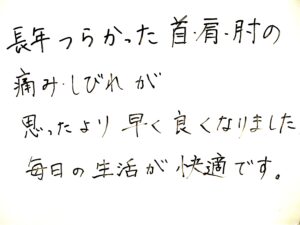 長年つらかった首・肩・肘の
痛み・しびれが
思ったより早く良くなりました
毎日の生活が快適です。